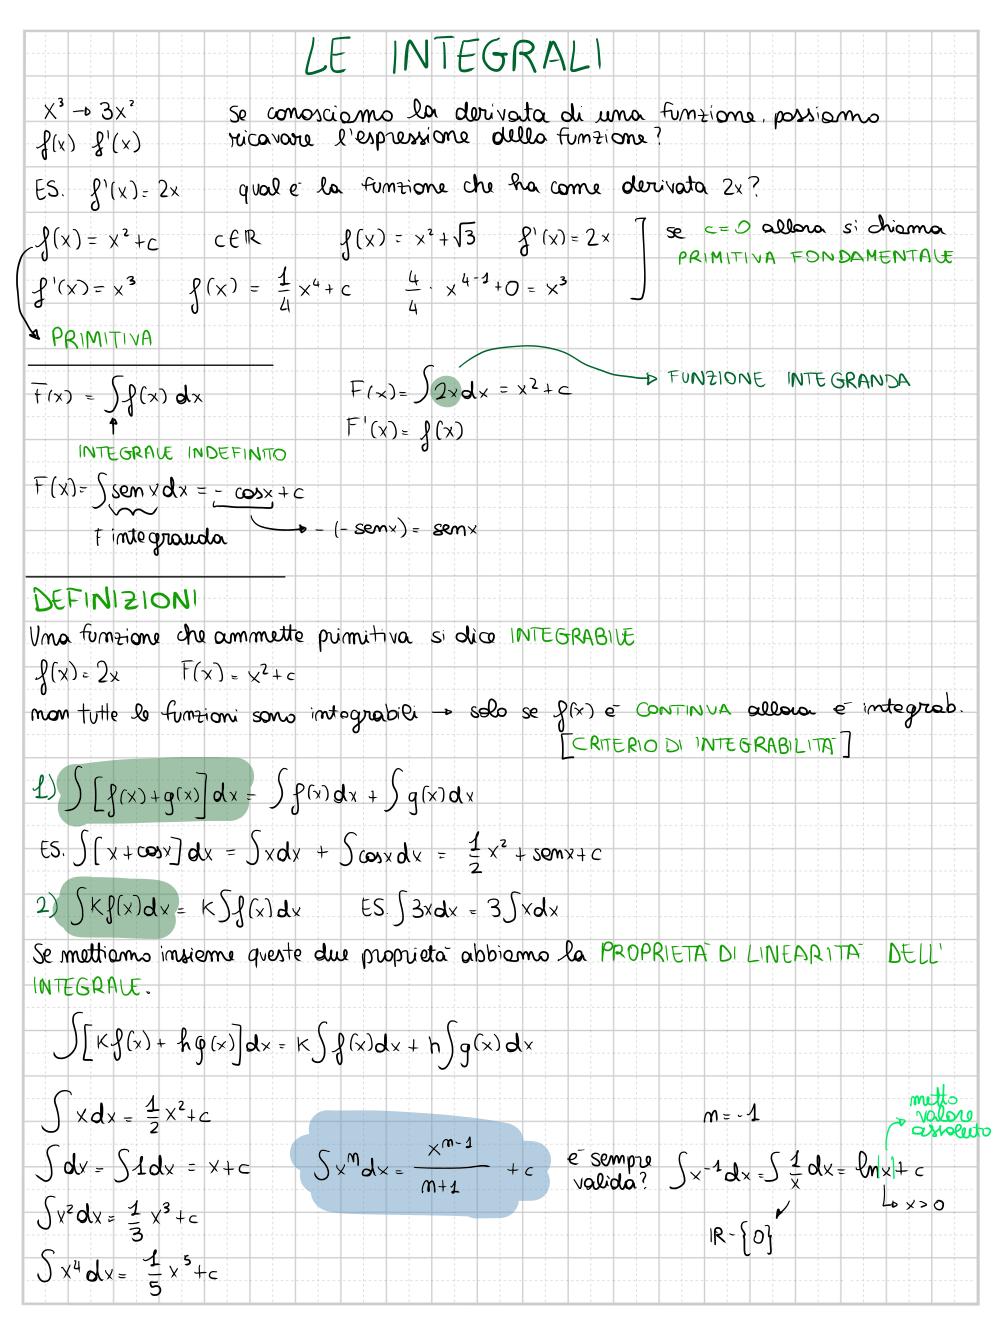 LE INTEGRALI
x³ → 3x² se conosciamo la derivata di una funzione, possiamo
f(x) f'(x) ricavare l'espressione della funzione?
ES. f'(x) = 2x qual è la funzione che ha come derivata 2x?
f(x) = x² + c c∈ℝ f(x) = x² + √3 f'(x) = 2x se c=0 allora si chiama
PRIMITIVA FONDAMENTALE
f'(x) = x³ f(x) = 1/4 x⁴ + c 4/4 · x⁴⁻¹ + 0 = x³
PRIMITIVA
F(x) = ∫f(x) dx F(x) = ∫2x dx = x² + c → FUNZIONE INTEGRANDA
F'(x) = f(x)
INTEGRALE INDEFINITO
F(x) = ∫sen x dx = - cosx + c
F integranda → - (- senx) = senx
DEFINIZIONI
Una funzione che ammette primitiva si dice INTEGRABILE
f(x) = 2x F(x) = x² + c
non tutte le funzioni sono integrabili → solo se f(x) è CONTINUA allora è integrab.
[CRITERIO DI INTEGRABILITÀ]
1) ∫[f(x) + g(x)] dx = ∫f(x) dx + ∫g(x) dx
ES. ∫[x + cosx] dx = ∫x dx + ∫cosx dx = 1/2 x² + senx + c
2) ∫K f(x) dx = K∫f(x) dx ES. ∫3x dx = 3∫x dx
Se mettiamo insieme queste due proprietà abbiamo la PROPRIETÀ DI LINEARITÀ DELL'
INTEGRALE.
∫[K f(x) + h g(x)] dx = K∫f(x) dx + h∫g(x) dx
metto
valore
assoluto
∫x dx = 1/2 x² + c n = -1
∫dx = ∫1 dx = x + c ∫xⁿ dx = xⁿ⁻¹/n+1 + c è sempre
valida? ∫x⁻¹ dx = ∫1/x dx = ln|x| + c
↳ x > 0
∫x² dx = 1/3 x³ + c ℝ - {0}
∫x⁴ dx = 1/5 x⁵ + c